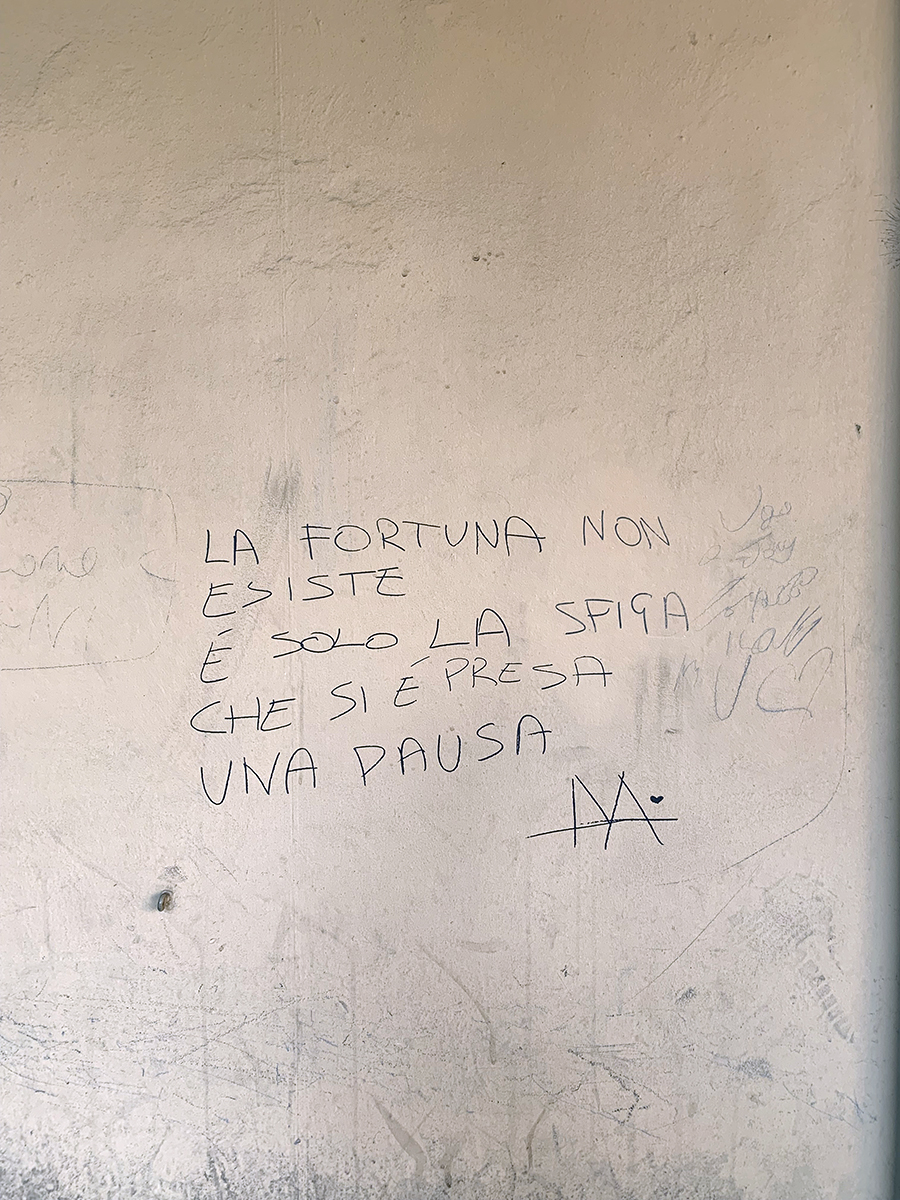 LA FORTUNA NON
ESISTE
É SOLO LA SFIGA
CHE SI É PRESA
UNA PAUSA